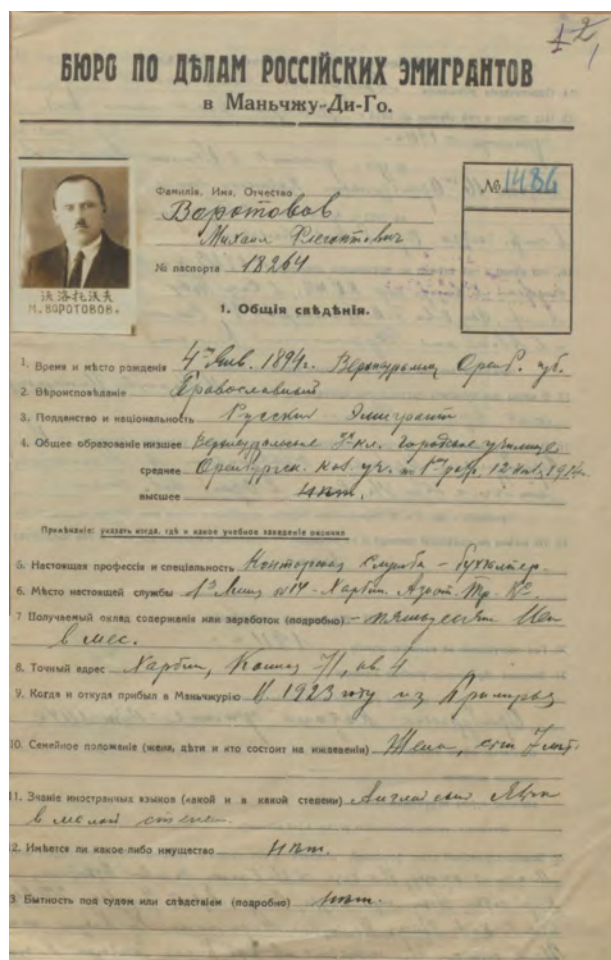 12
1
БЮРО ПО ДѢЛАМ РОССІЙСКИХ ЭМИГРАНТОВ
в Маньчжу-Ди-Го.
Фамилія, Имя, Отчество
Воротовов
Михаил Флегонтович
№ 1486
№ паспорта 18264
沃洛托沃夫
М.ВОРОТОВОВ.
1. Общія свѣдѣнія.
1. Время и мѣсто рожденія 4го Янв. 1894г. Верхнеуральск, Оренб. губ.
2. Вѣроисповѣданіе Православный
3. Подданство и національность Русскій Эмигрант
4. Общее образованіе низшее Верхнеуральское 3х-кл. Городское училище
среднее Оренбургск. каз. уч. по 1му разр. 1914г.
высшее нѣт.
Примѣчаніе: указать когда, гдѣ и какое учебное заведеніе окончил
5. Настоящая профессія и спеціальность Конторская служба - бухгалтер.
6. Мѣсто настоящей службы 1я Линия №14 - Харбин.
7 Получаемый оклад содержанія или заработок (подробно) - пятьдесят Иен
в мес.
8. Точный адрес Харбин, 71, кв. 4
9. Когда и откуда прибыл в Маньчжурію В 1923 году из Приморья
10. Семейное положеніе (жена, дѣти и кто состоит на иждевеніи) Жена, сын 7 лет
11. Знаніе иностранных языков (какой и в какой степени) Английский язык
в малой степени.
12. Имѣется ли какое-либо имущество нѣт.
3. Бытность под судом или слѣдствіем (подробно) нѣт.